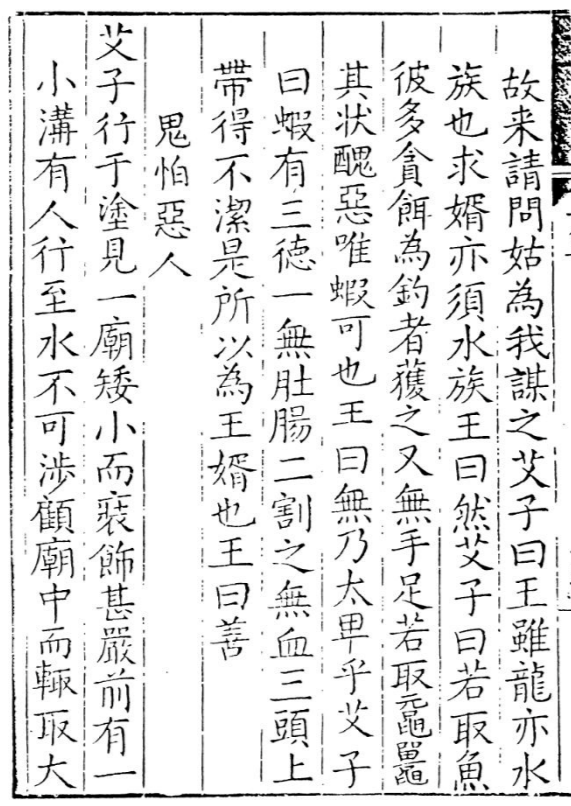 故来請問姑為我謀之艾子曰王雖龍亦水
族也求婿亦須水族王曰然艾子曰若取魚
彼多貪餌為釣者獲之又無手足若取黿鼉
其状醜惡唯蝦可也王曰無乃太卑乎艾子
曰蝦有三徳一無肚腸二割之無血三頭上
帶得不潔是所以為王婿也王曰善
鬼怕惡人
艾子行于塗見一廟矮小而裝飾甚嚴前有一
小溝有人行至水不可涉顧廟中而輙取大